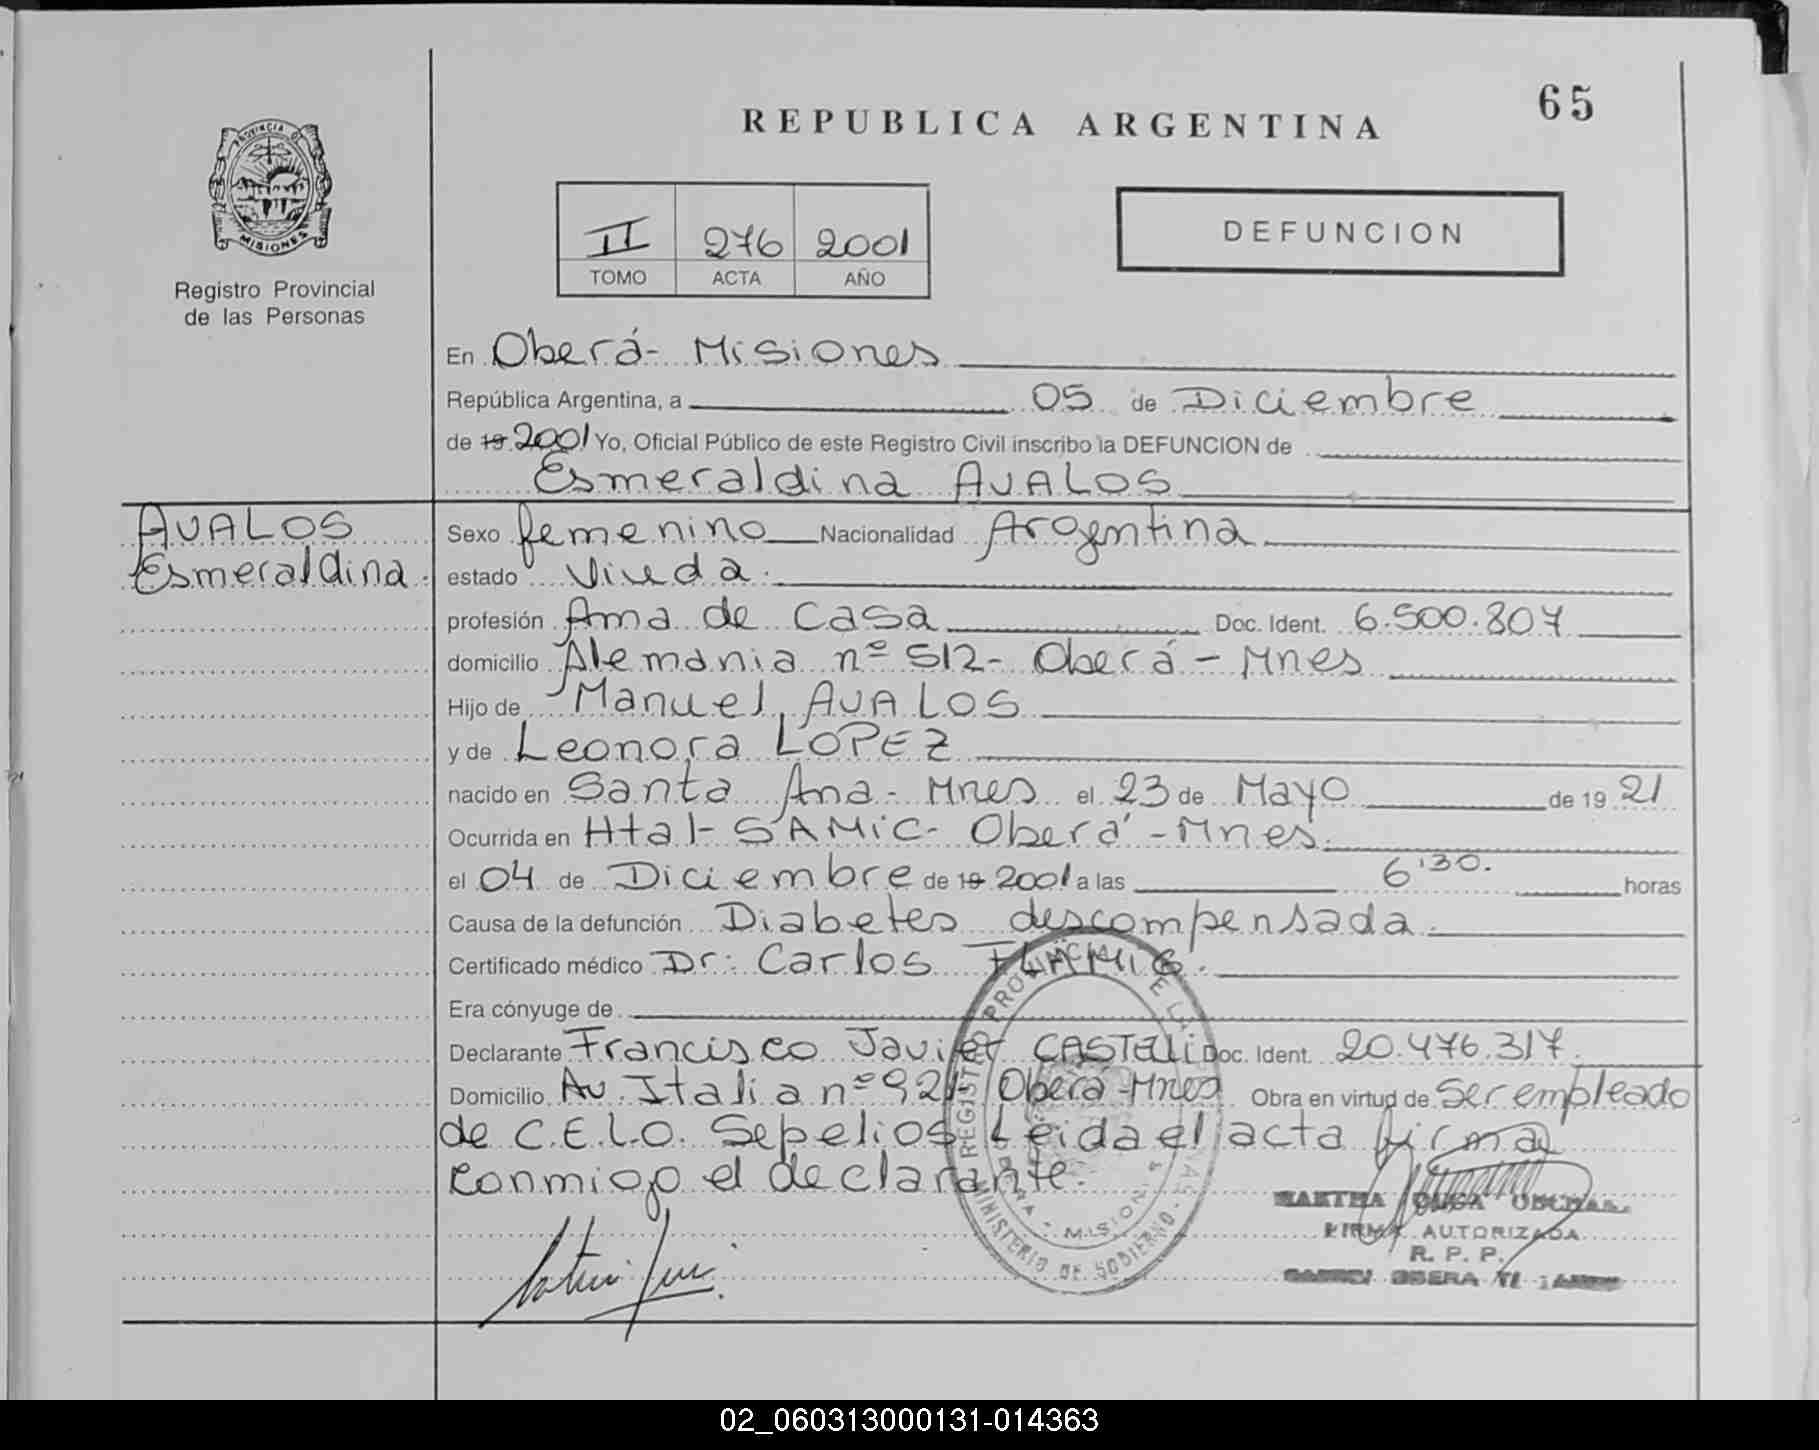 65
REPUBLICA ARGENTINA
PROVINCIA DE
MISIONES
Registro Provincial
de las Personas
II 276 2001
TOMO ACTA AÑO
DEFUNCION
En Oberá- Misiones
República Argentina, a 05 de Diciembre
de 19 2001 Yo, Oficial Público de este Registro Civil inscribo la DEFUNCION de
Esmeraldina AVALOS
AVALOS
Esmeraldina.
Sexo femenino Nacionalidad Argentina
estado Viuda.
profesión Ama de Casa Doc. Ident. 6.500.807
domicilio Alemania nº 512- Oberá - Mnes
Hijo de Manuel AVALOS
y de Leonora LOPEZ
nacido en Santa Ana - Mnes el 23 de Mayo de 19 21
Ocurrida en Htal- SAMiC- Oberá -Mnes.
el 04 de Diciembre de 19 2001 a las 6'30. horas
Causa de la defunción Diabetes descompensada.
Certificado médico Dr: Carlos FLAMIG.
Era cónyuge de
Declarante Francisco Javier CASTELLi Doc. Ident. 20.476.317.
Domicilio Av. Italia nº 921- Oberá -Mnes Obra en virtud de ser empleado
de C.E.L.O. Sepelios Leida el acta firma
conmigo el declarante.
REGISTRO PROVINCIAL DE LAS PERSONAS
MINISTERIO DE GOBIERNO
OBERA - MISIONES
MARTHA OLGA
FIRMA AUTORIZADA
R. P. P.
OBERA
02_060313000131-014363